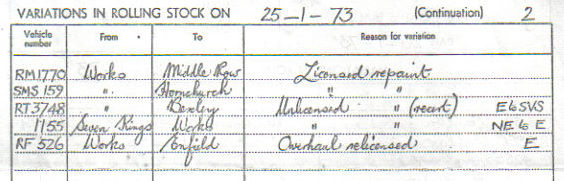 VARIATIONS IN ROLLING STOCK ON 25-1-73 (Continuation) 2
Vehicle number From To Reason for variation
RM1770 Works Middle Row Licensed repaint
SMS 159 " Hornchurch " "
RT3748 " Bexley Unlicensed " (recert) E to SVS
1155 Seven Kings Works " " NE to E
RF 526 Works Enfield Overhaul relicensed E